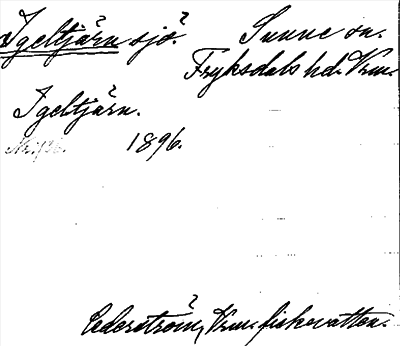 Igeltjärn sjö. Sunne sn.
Fryksdals hd. Vrm.
Igeltjärn.
1896.
Cederström, Vrm. fiskevatten.